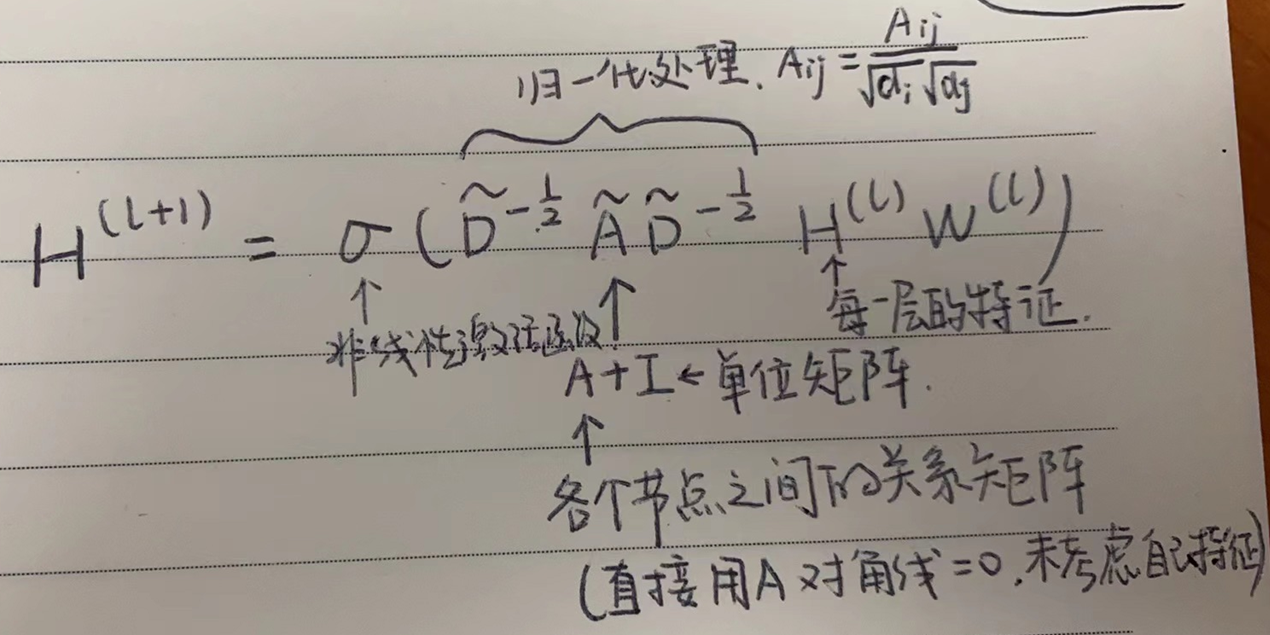 归一化处理. Aij = Aij / √di √dj
H^(l+1) = σ ( D̃^-1/2 Ã D̃^-1/2 H^(l) W^(l) )
↑ ↑ ↑
非线性激活函数 每一层的特征.
A+I ← 单位矩阵.
↑
各个节点之间的关系矩阵
(直接用A对角线=0,未考虑自己特征)